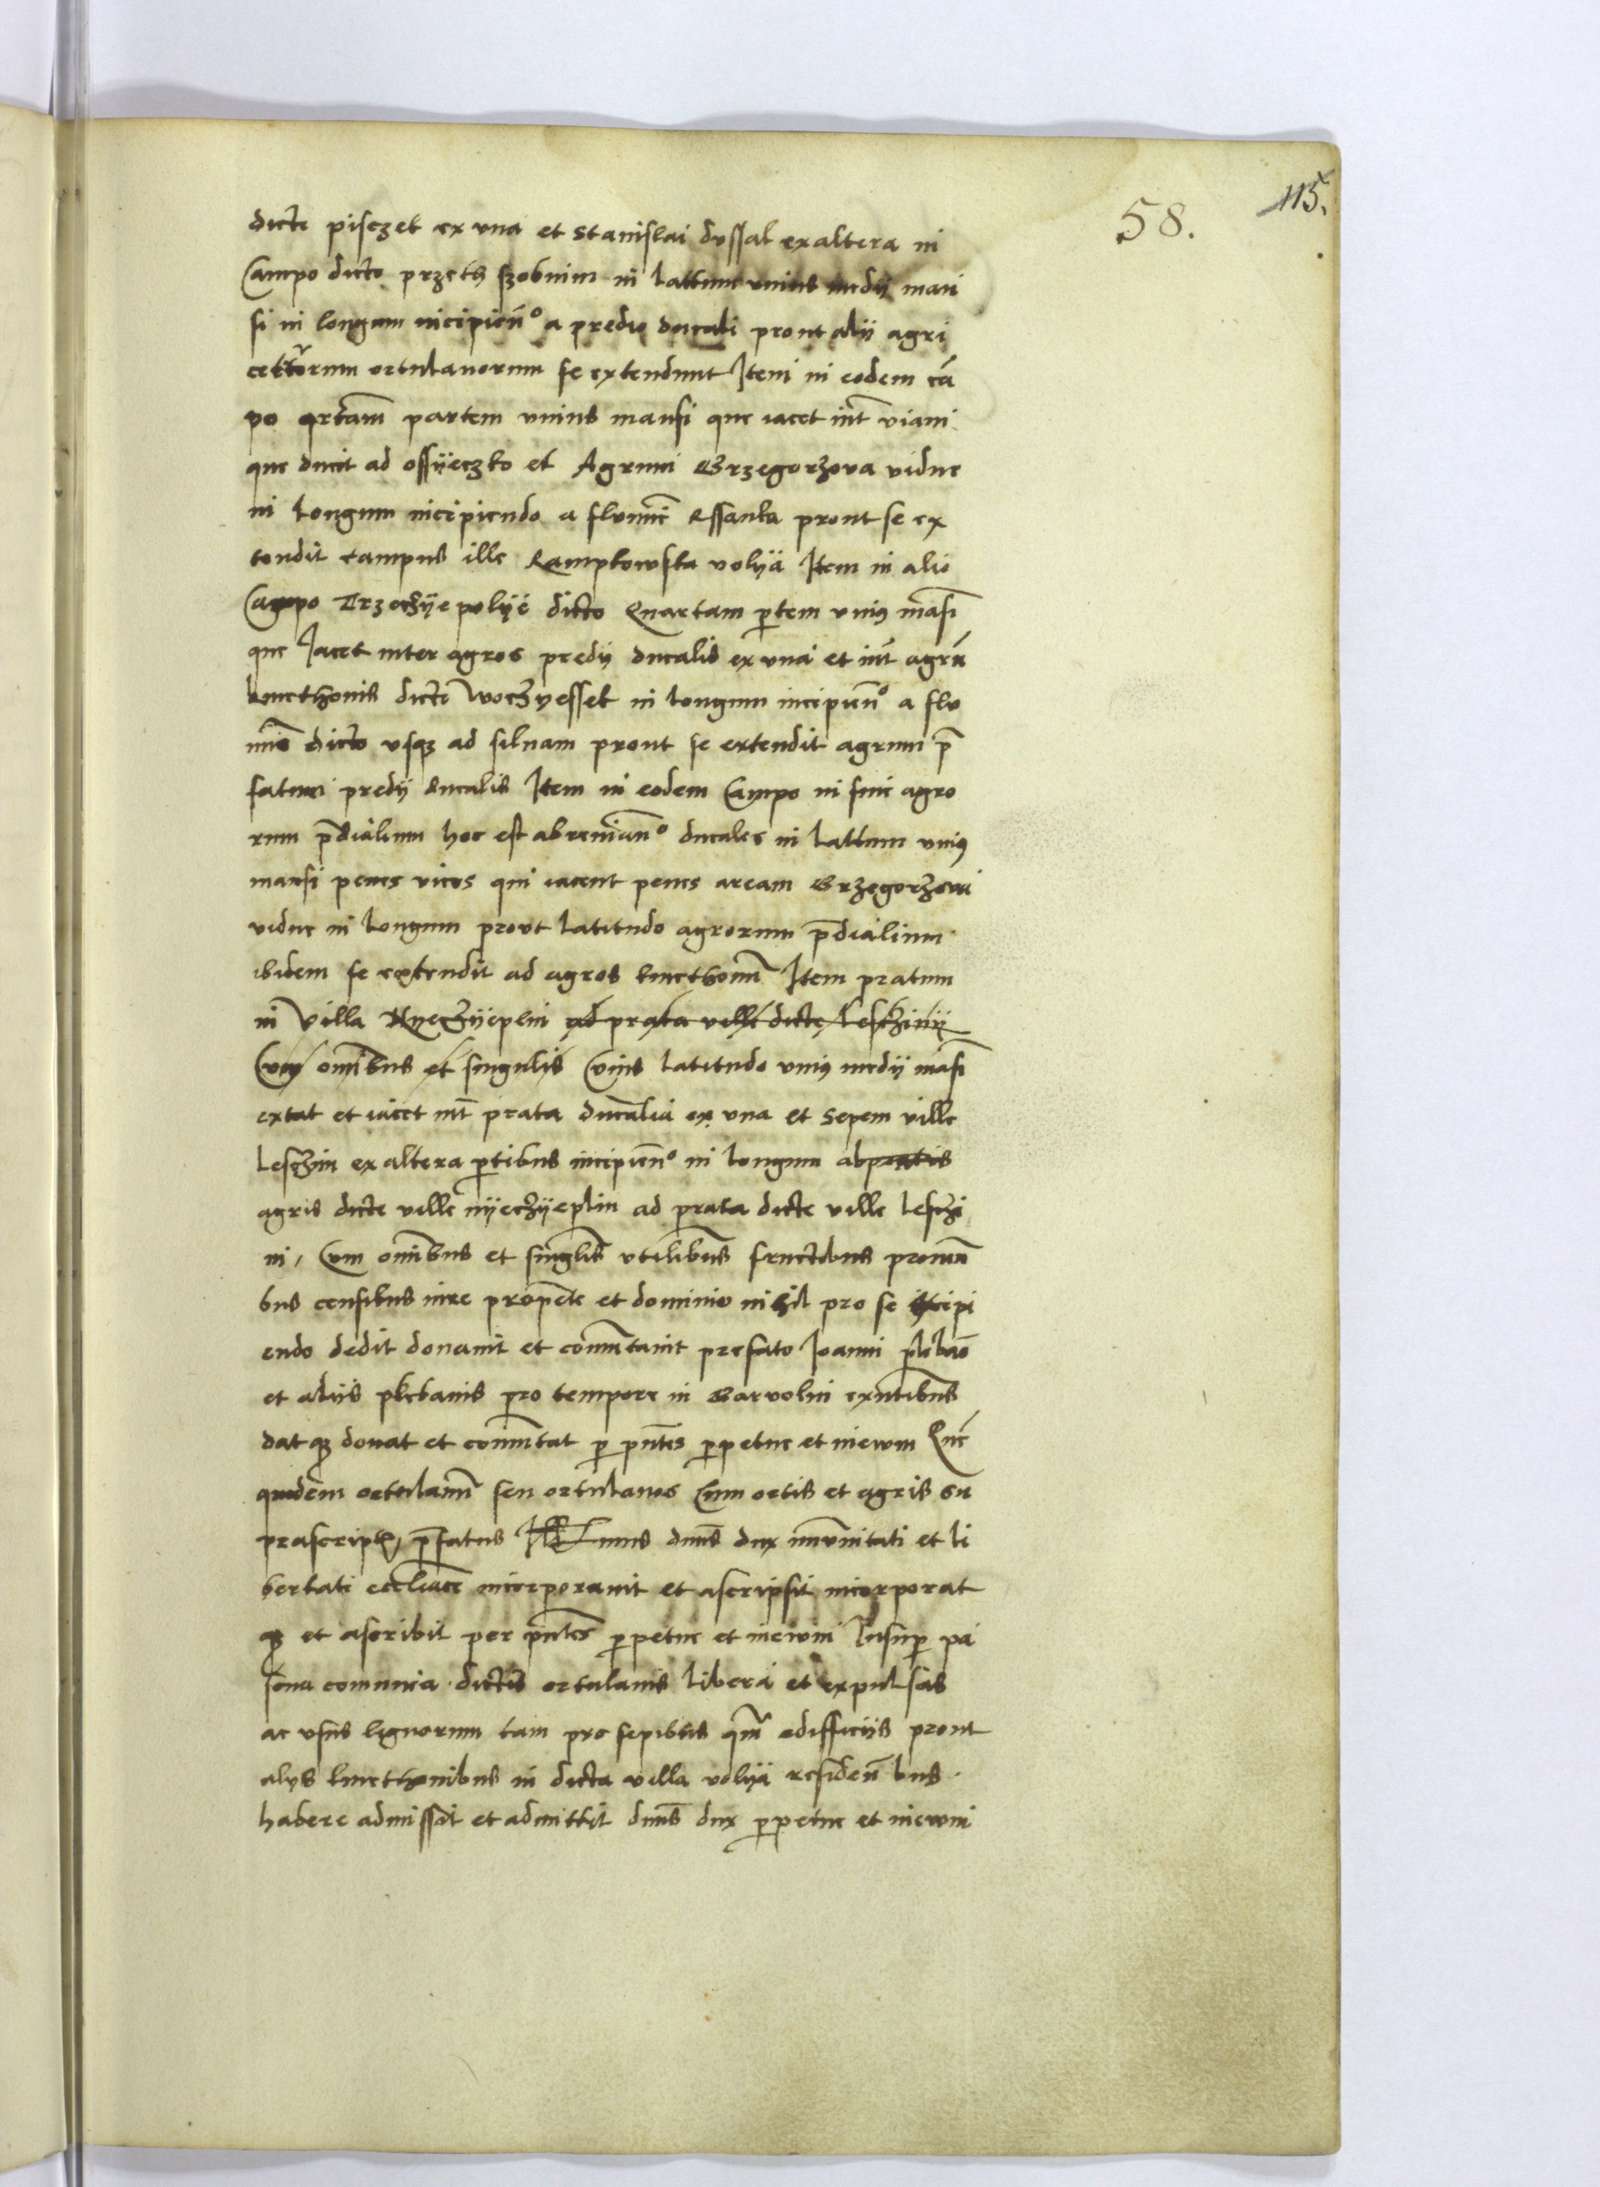 58.
115.
dicti pisczek ex una et Stanislai dussal ex altera in
Campo dicto przeth szobnim in lattum unius medij man
si in longum incipiend° a predio ducali prout alij agri
ceterorum ortulanorum se extendunt Item in eodem cā
po qrtam partem unius mansi que iacet int viam
que ducit ad ossyeczko et Agrum Grzegorzova vidue
in longum incipiendo a flumie Rssanka prout se ex
tendit campus ille Ramptowska volya Item in alio
Campo Trzeczyepolye dicto Quartam ptem unius masi
que Iacet inter agros predij ducalis ex una et int agrū
kmethonis dicti Woczyessek in longum incipien° a flu
mie dicto usq ad siluam prout se extendit agrum p
fatum predij ducalis Item in eodem Campo in fine agro
rum pdialium hoc est abreniand° ducales in lattum unius
mansi penes vicos qui iacent penes aream Grzegorzowi
vidue in longum prout latitudo agrorum pdialium
ibidem se extendit ad agros kmethonū Item pratum
in villa Nyeczyeplin ad prata ville dicte leschinij
Cum omibus et singulis Cuius latitudo unius medij masi
extat et iacet int prata ducalia ex una et sepem ville
leschin ex altera ptibus incipien° in longum ab pratis
agris dicte ville nyeczyeplin ad prata dicte ville leschi
ni, Cum omibus et singlis utilibus fructibus prouen
bus censibus iure propete et dominio nihil pro se excipi
endo dedit donauit et comutauit prefato Ioanni plebao
et alijs plebanis pro tempore in Garvolin exntibus
dat q donat et comutat p pntes perpetue et in ewm Que
quidem ortulanū seu ortulanos Cum ortis et agris su
prascriptis, pfatus Illmus dnus dux imunitati et li
bertati eccliace incorporauit et ascripsit incorporat
q et ascribit per pntes perpetue et in ewm Insup pa
scua comunia dictis ortulanis libera et expulsas
ac usus lignorum tam pro sepibus qm edifficijs prout
alys kmethonibus in dicta villa volya residen bus
habere admissit et admittit dnus dux perpetue et in ewm